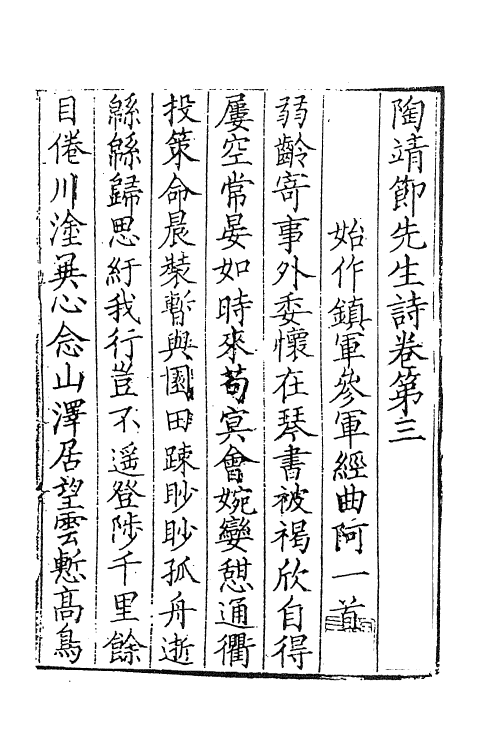 陶靖節先生詩卷第三
始作鎮軍參軍經曲阿一首
弱齡寄事外委懷在琴書被褐欣自得
屢空常晏如時來苟㝠會婉孌憇通衢
投策命晨裝暫與園田踈眇眇孤舟逝
緜緜歸思紆我行豈不遥登陟千里餘
目倦川塗異心念山澤居望雲慙高鳥